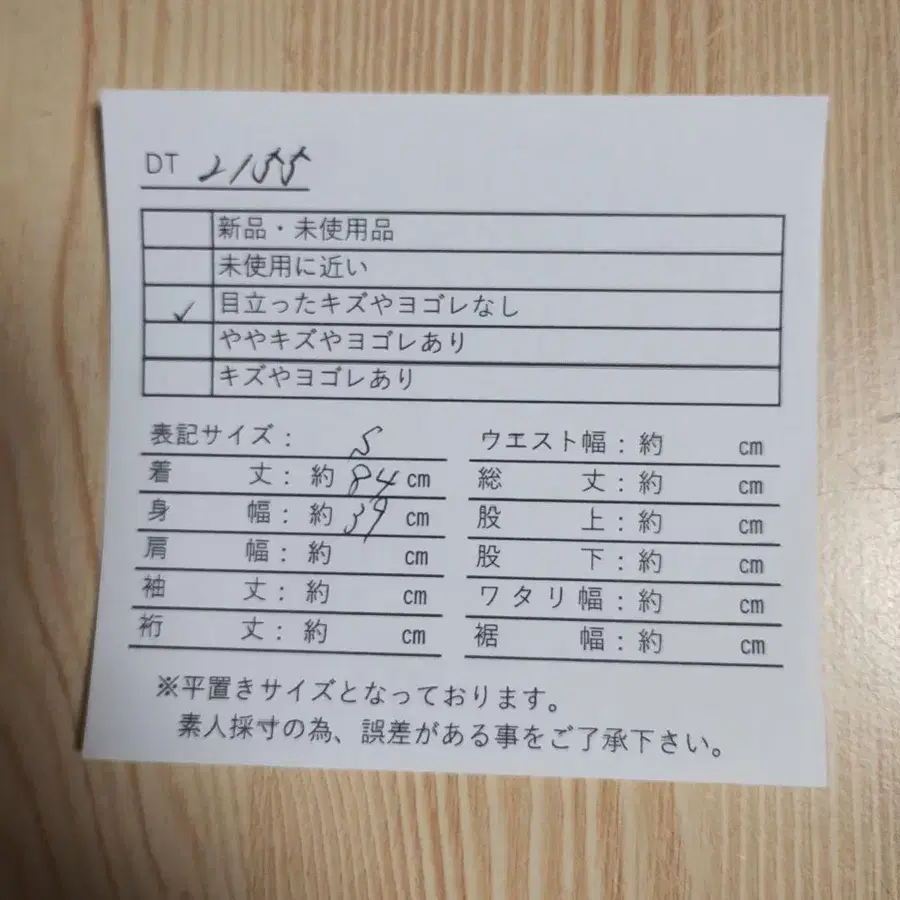 DT 2155
新品・未使用品
未使用に近い
✓ 目立ったキズやヨゴレなし
ややキズやヨゴレあり
キズやヨゴレあり
表記サイズ： S
着丈：約 84 cm
身幅：約 39 cm
肩幅：約 cm
袖丈：約 cm
裄丈：約 cm
ウエスト幅：約 cm
総丈：約 cm
股上：約 cm
股下：約 cm
ワタリ幅：約 cm
裾幅：約 cm
※平置きサイズとなっております。
素人採寸の為、誤差がある事をご了承下さい。